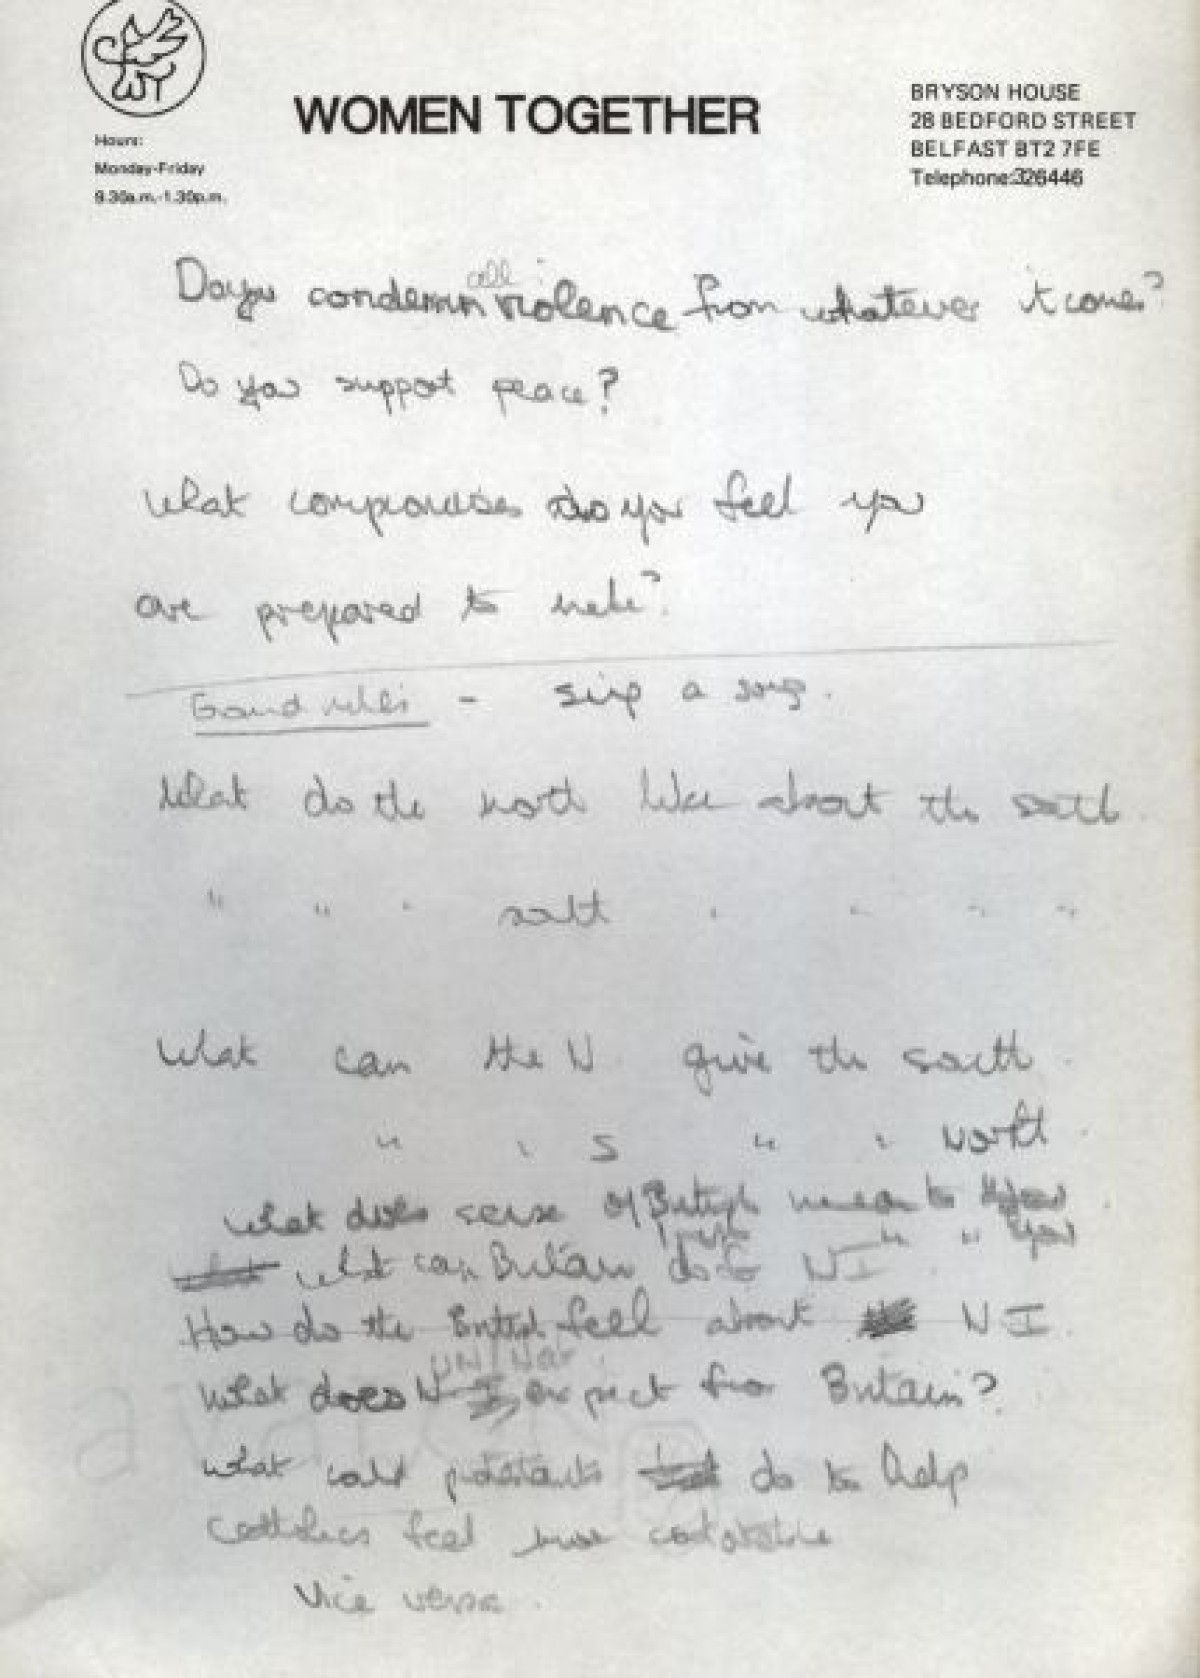 WY
WOMEN TOGETHER
Hours:
Monday-Friday
9.30a.m.-1.30p.m.
BRYSON HOUSE
28 BEDFORD STREET
BELFAST BT2 7FE
Telephone:326446
Do you condemn all violence from whatever it comes?
Do you support peace?
What compromises do you feel you
are prepared to make?
Ground rules - sing a song.
What do the north like about the south.
" " " south " " " "
What can the N. give the south.
" " S " " North.
What does sense of British mean to
Irish " " you
what can Britain do for N I.
How do the British feel about N I.
What does N I expect from Britain?
What could protestants do to help
Catholics feel more comfortable
Vice versa.